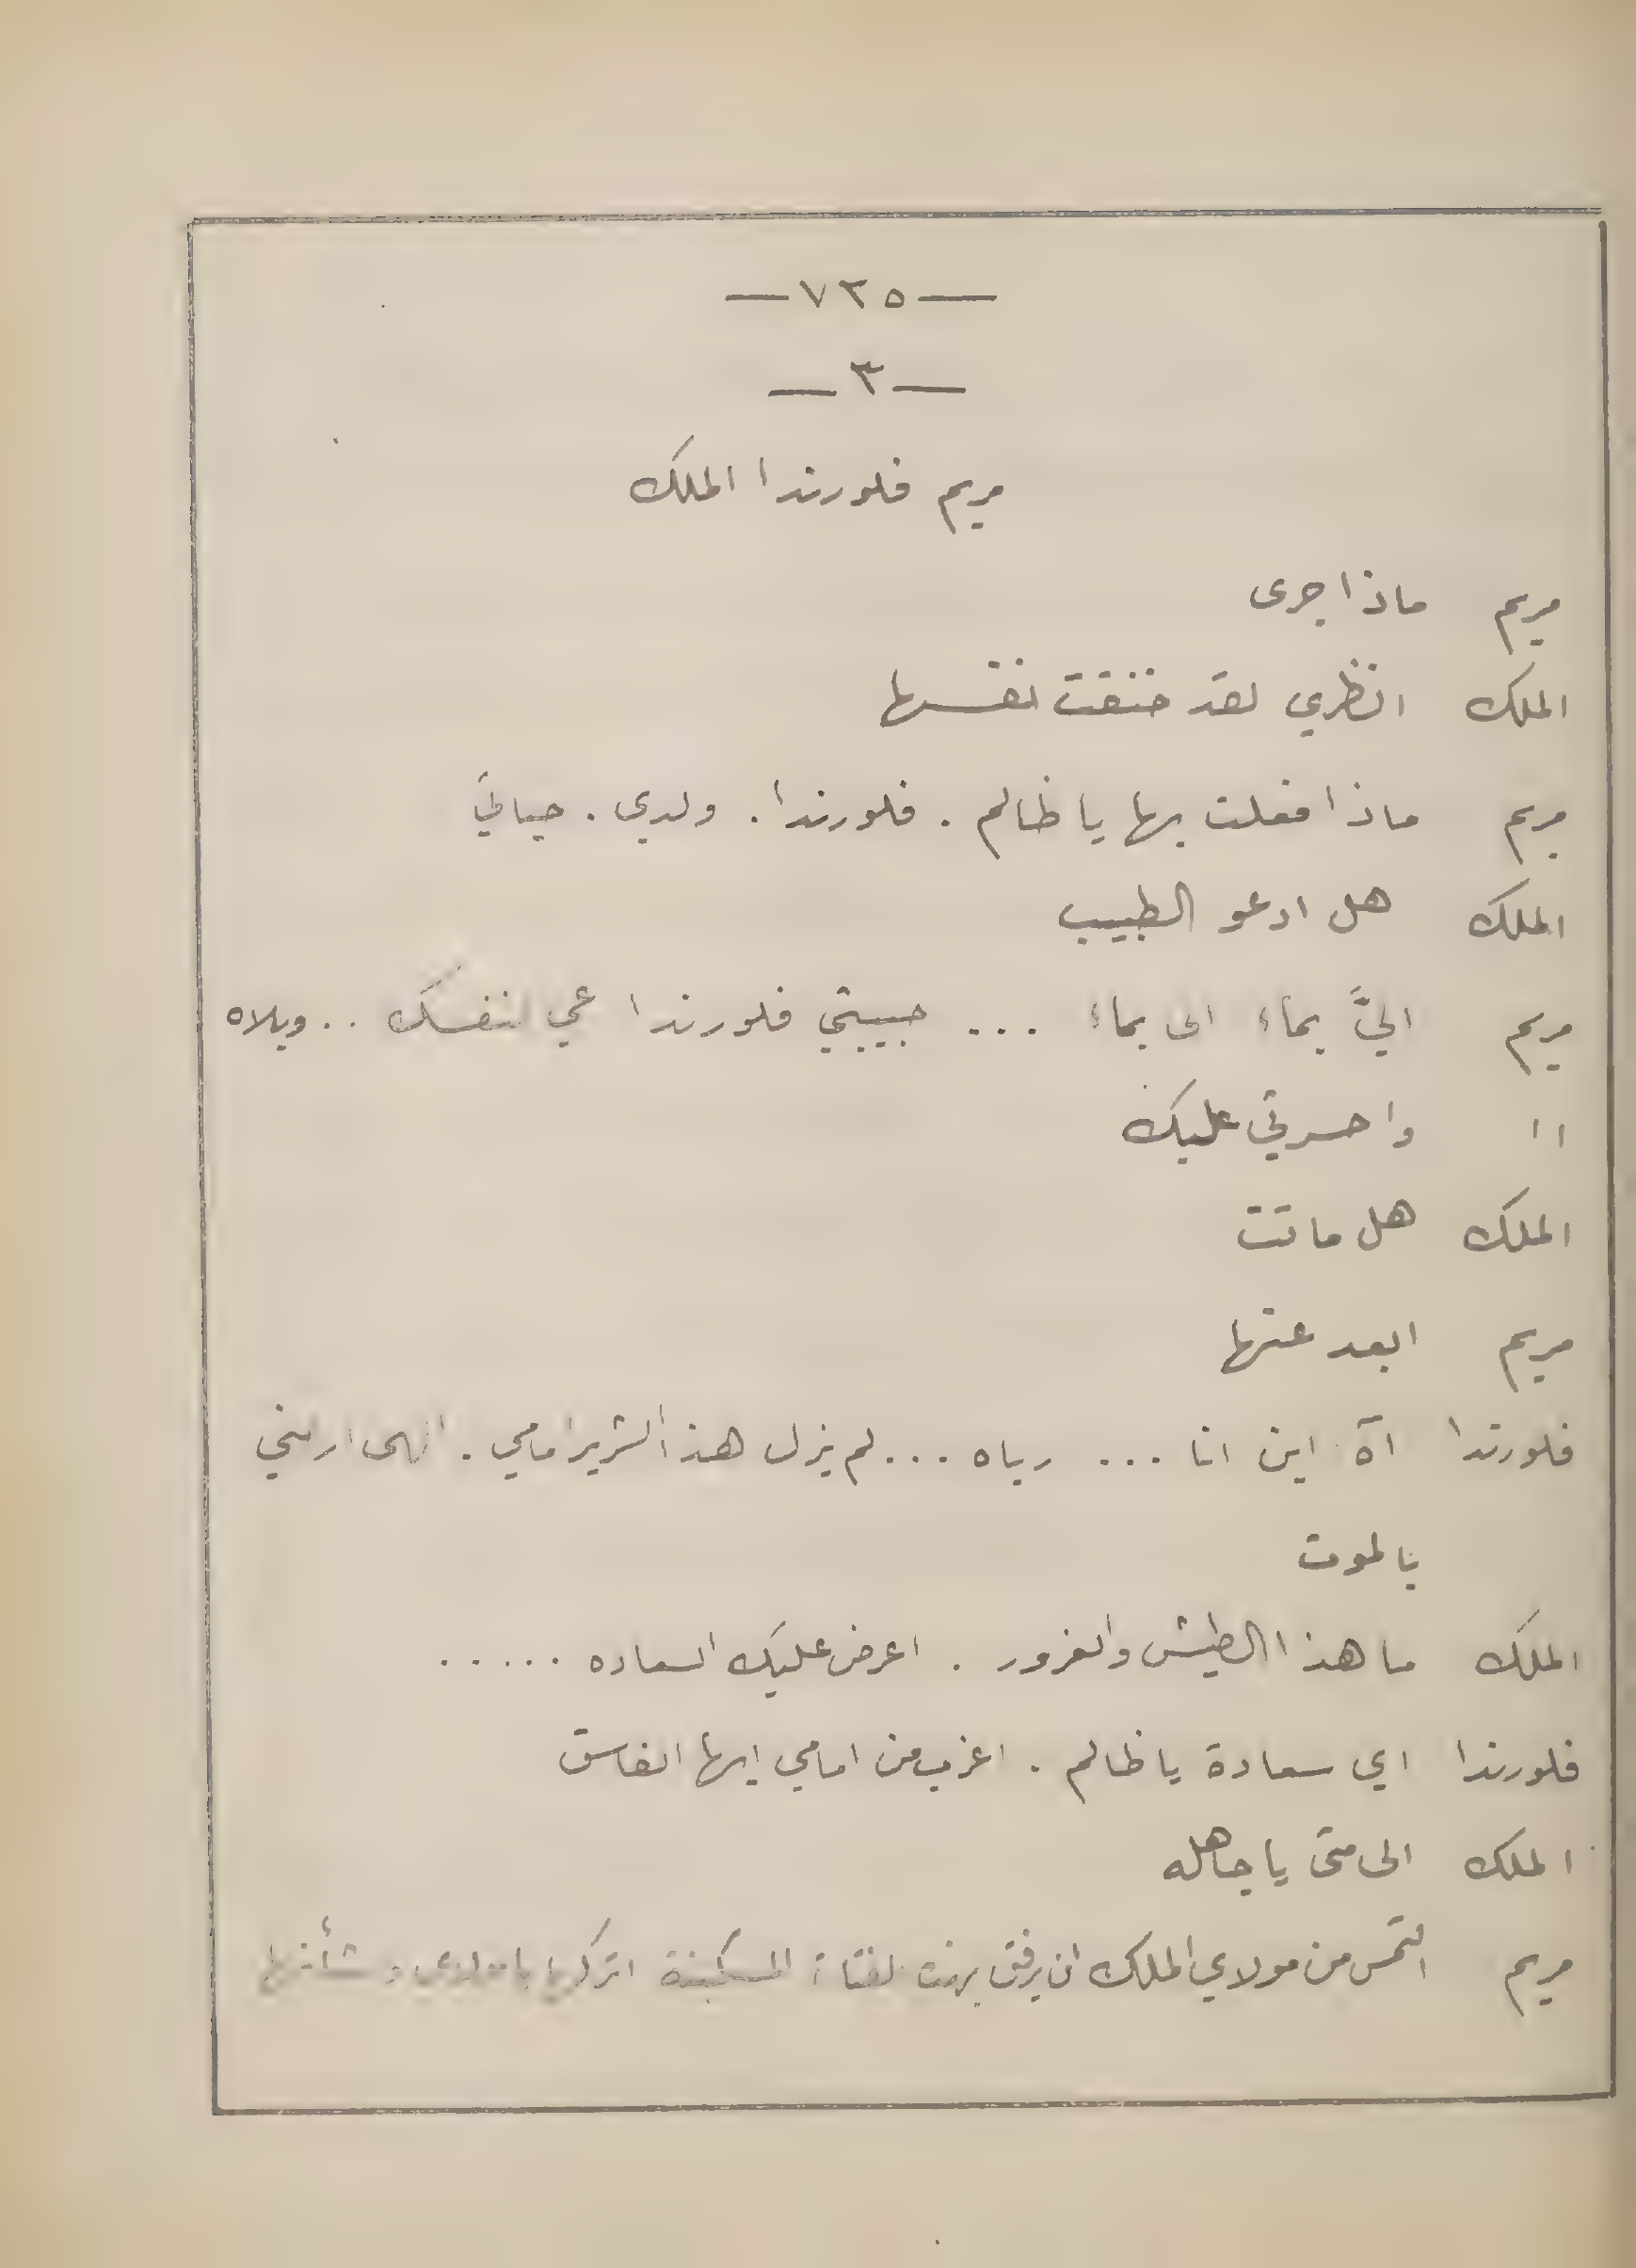 —٧٣٥—
—٣—
مريم فلورندا الملك
مريم ماذا جرى
الملك انظري لقد خنقت نفسها
مريم ماذا فعلت بها يا ظالم . فلورندا . ولدي . حياتي
الملك هل ادعو الطبيب
مريم اليَّ بماء الى بماء ... حبيبتي فلورندا عي لنفسك .. ويلاه
" واحسرتي عليك
الملك هل ماتت
مريم ابعد عنها
فلورندا آه اين انا ... رباه ... لم يزل هذا الشرير امامي . الهى ارحني
بالموت
الملك ما هذا الطيش والغرور . اعرض عليك السعاده .....
فلورندا اي سعادة يا ظالم . اغرب من امامي ايها الفاسق
الملك الى متى يا جاهله
مريم التمس من مولاي الملك ان يرفق بهذه الفتاة المسكينة اتركها يا مولاي وشأنها